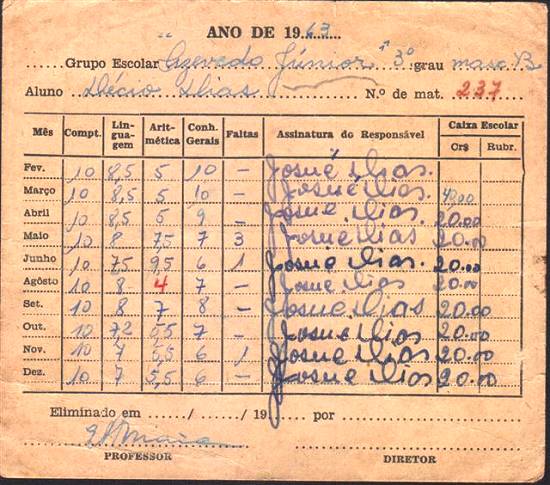 ANO DE 1963
Grupo Escolar Azevedo Júnior 3º grau masc B
Aluno Décio Dias Nº de mat. 237
Mês Compt. Lin-guagem Arit-mética Conh. Gerais Faltas Assinatura do Responsável Caixa Escolar Cr$ Rubr.
Fev. 10 8,5 5 10 — Josué Dias.
Março 10 8,5 5 10 — Josué Dias. 40.00
Abril 10 8,5 5 9 — Josué Dias. 20.00
Maio 10 8 7,5 7 3 Josué Dias 20.00
Junho 10 7,5 9,5 6 1 Josué Dias. 20.00
Agôsto 10 8 4 7 — Josué Dias 20.00
Set. 10 8 7 8 — Josué Dias 20.00
Out. 10 7,2 5,5 7 — Josué Dias 20.00
Nov. 10 7 5,5 6 1 Josué Dias 20.00
Dez. 10 7 5,5 6 — Josué Dias 20.00
Eliminado em ....../....../ 19..... por
PROFESSOR DIRETOR